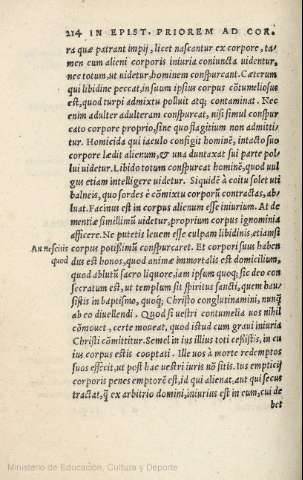 214 IN EPIST. PRIOREM AD COR.
ra quæ patrant impij, licet nascantur ex corpore, ta-
men cum alieni corporis iniuria coniuncta uidentur,
nec totum, ut uidetur, hominem conspurcant. Cæterum
qui libidine peccat, in suum ipsius corpus cōtumeliosus
est, quod turpi admixtu polluit atq; contaminat. Nec
enim adulter adulteram conspurcat, nisi simul conspur
cato corpore proprio, sine quo flagitium non admitti-
tur. Homicida qui iaculo configit hominē, intacto suo
corpore lædit alienum, & una duntaxat sui parte pol-
lui uidetur. Libido totum conspurcat hominē, quod uul
gus etiam intelligere uidetur. Siquidē à coitu solet uti
balneis, quo sordes è cōmixtu corporū contractas, ab-
luat. Facinus est in corpus alienum esse iniurium. At de
mentiæ simillimū uidetur, proprium corpus ignominia
afficere. Ne putetis leuem esse culpam libidinis, etiamsi
An nescitis corpus potissimū conspurcaret. Et corpori suus haben
quod dus est honos, quod animæ immortalis est domicilium,
quod ablutū sacro liquore, iam ipsum quoq; sic deo con
secratum est, ut templum sit spiritus sancti, quem hau-
sistis in baptismo, quoq; Christo conglutinamini, nunq̄
ab eo diuellendi. Quod si uestri contumelia uos nihil
cōmouet, certe moueat, quod istud cum graui iniuria
Christi cōmittitur. Semel in ius illius toti cessistis, in cu
ius corpus estis cooptati. Ille uos à morte redemptos
suos effecit, ut post hac uestri iuris nō sitis. Ius empticij
corporis penes emptorē est, id qui alienat, aut qui secus
tractat, q̄ ex arbitrio domini, iniurius est in eum, cui de
bet
Ministerio de Educación, Cultura y Deporte